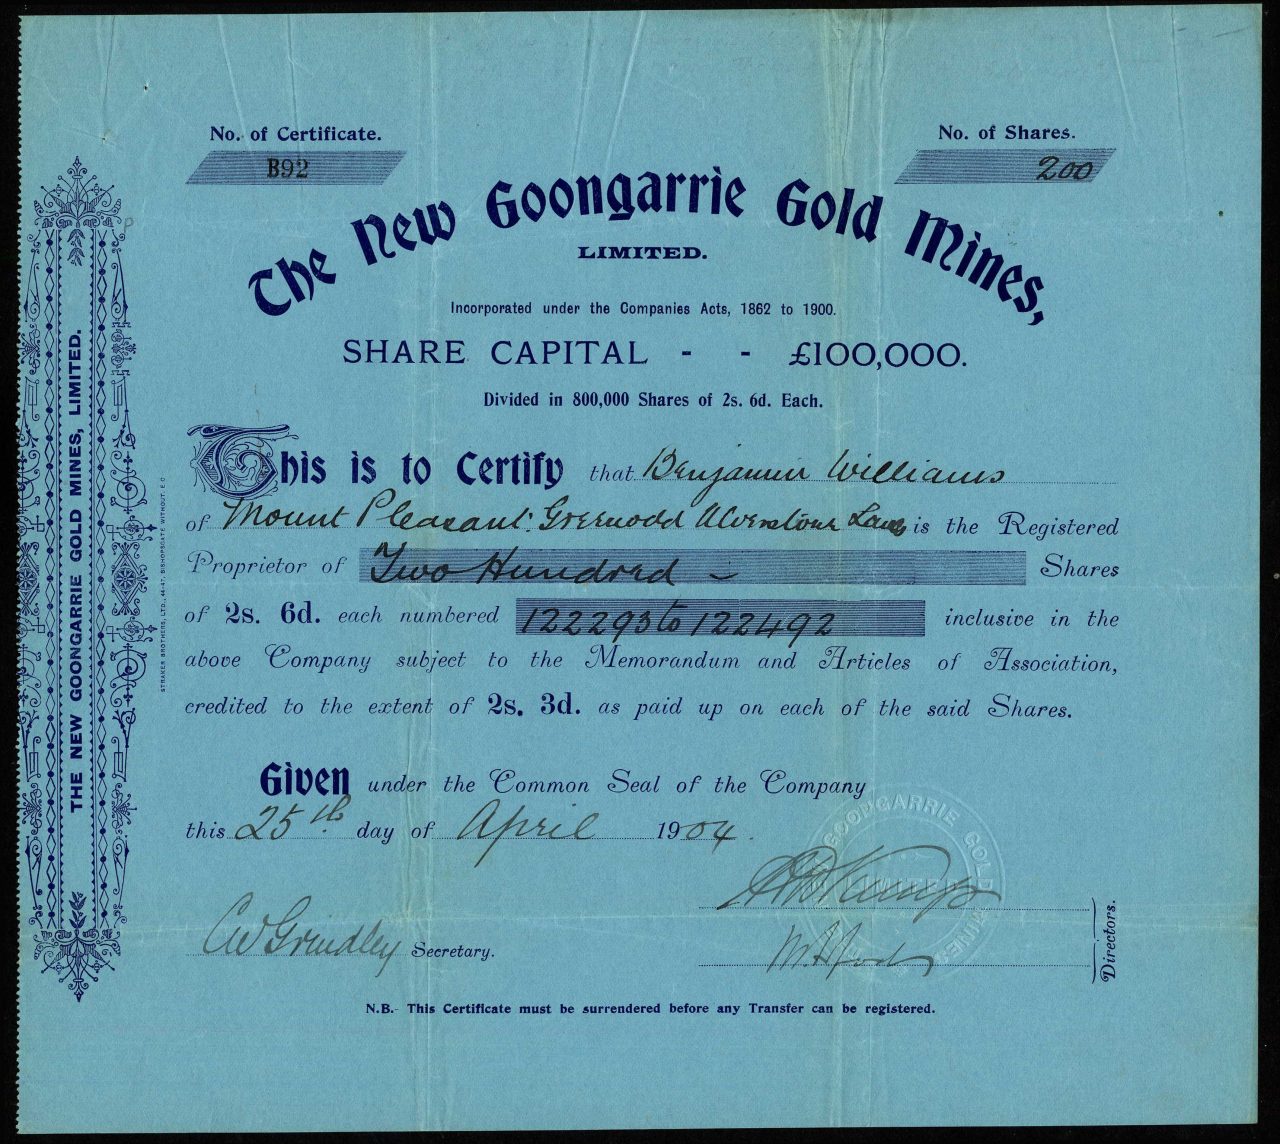 No. of Certificate.
B92
No. of Shares.
200
The New Goongarrie Gold Mines,
LIMITED.
Incorporated under the Companies Acts, 1862 to 1900.
SHARE CAPITAL - - £100,000.
Divided in 800,000 Shares of 2s. 6d. Each.
This is to Certify that Benjamin Williams
of Mount Pleasant Greenodd Ulverstone Lancs is the Registered
Proprietor of Two Hundred – Shares
of 2s. 6d. each numbered 122293 to 122492 inclusive in the
above Company subject to the Memorandum and Articles of Association,
credited to the extent of 2s. 3d. as paid up on each of the said Shares.
Given under the Common Seal of the Company
this 25th day of April 1904.
GOONGARRIE GOLD MINES
LIMITED
CW Grindley Secretary.
Directors.
N.B.- This Certificate must be surrendered before any Transfer can be registered.
THE NEW GOONGARRIE GOLD MINES, LIMITED.
STRAKER BROTHERS, LTD., 44-47, BISHOPSGATE WITHOUT. E.C